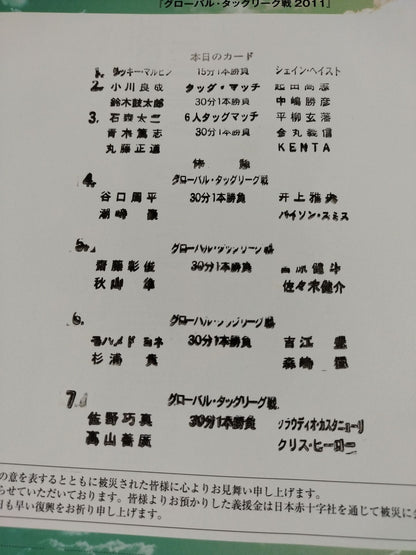 『グローバル・タッグリーグ戦2011』
本日のカード
1. ッキー・マルビン 15分1本勝負 シェイン・ヘイスト
2. 小川良成 タッグ・マッチ 志賀
鈴木鼓太郎 30分1本勝負 中嶋勝彦
3. 石森太二 6人タッグマッチ 平柳玄藩
青木篤志 30分1本勝負 金丸義信
丸藤正道 KENTA
休憩
4. グローバル・タッグリーグ戦
谷口周平 30分1本勝負 井上雅央
潮﨑豪 バイソン・スミス
5. グローバル・タッグリーグ戦
齋藤彰俊 30分1本勝負 健斗
秋山準 佐々木健介
6. グローバル・タッグリーグ戦
モハメド ヨネ 30分1本勝負 吉江豊
杉浦貴 森嶋猛
7. グローバル・タッグリーグ戦
佐野巧真 30分1本勝負 クラウディオ・カスタニョーリ
高山善廣 クリス・ヒーロー
の意を表するとともに被災された皆様に心よりお見舞い申し上げます。
らせていただいております。皆様よりお預かりした義援金は日本赤十字社を通じて被災に
日も早い復興をお祈り申し上げます。